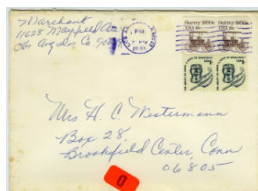 Marchant
11608 Mayfield Ave
Los Angeles Ca 90049
PM
Surrey 1890s
USA 18c
Surrey 1890s
USA 18c
Mrs H. C. Westermann
Box 28,
Brookfield Center, Conn
06805